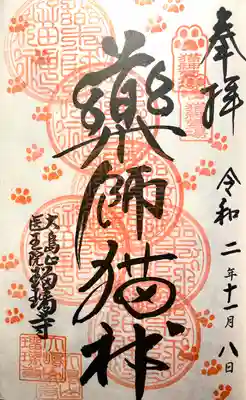 奉拝
令和二年十一月八日
薬師猫神
大島山
医王院 瑠璃寺